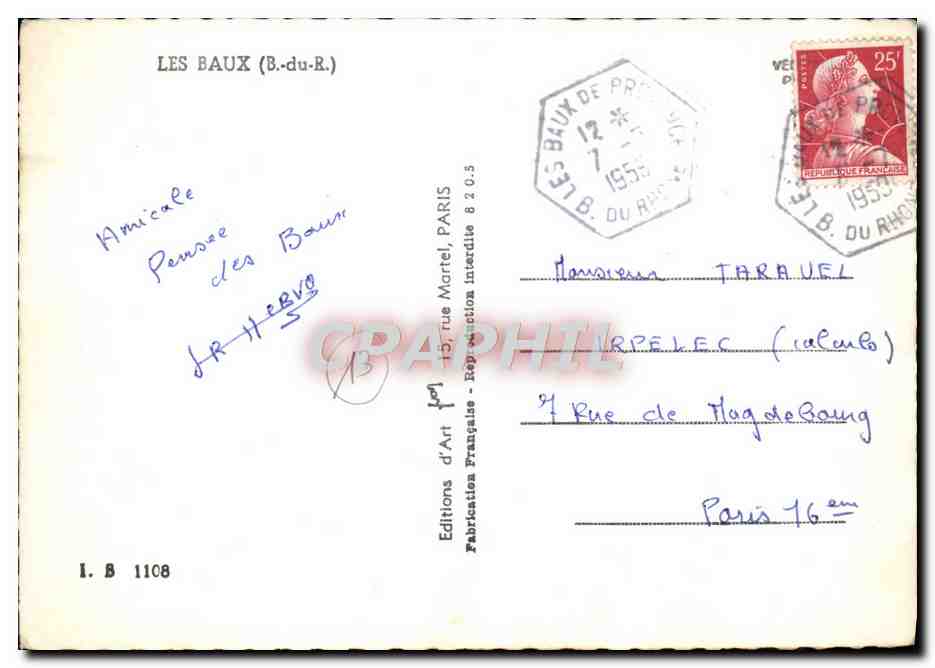 LES BAUX (B.-du-R.)
Amicale
Pensée
des Baux
JR HERVO
13
I. B 1108
Editions d'Art 15, rue Martel, PARIS
Fabrication Française - Reproduction interdite 8 2 0.5
CARAPHIL
LES BAUX DE PR
12 *
7 -
1959
B. DU RHONE
25F
POSTES
REPUBLIQUE FRANÇAISE
LES BAUX DE PR
12 *
1959
B. DU RHONE
Monsieur TARAVEL
IRPELEC (Calculs)
7 Rue de Magdebourg
Paris 16 em